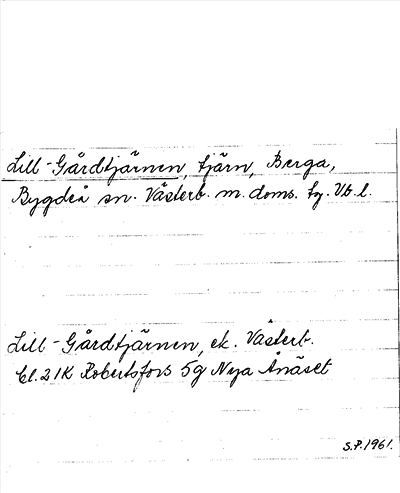 Lill-Gårdtjärnen, tjärn, Berga,
Bygdeå sn. Västerb. m. doms. tg. Vb. l.
Lill-Gårdtjärnen, ek. Västerb.
bl. 21K Robertsfors 5g Nya Ånäset
S.P. 1961.